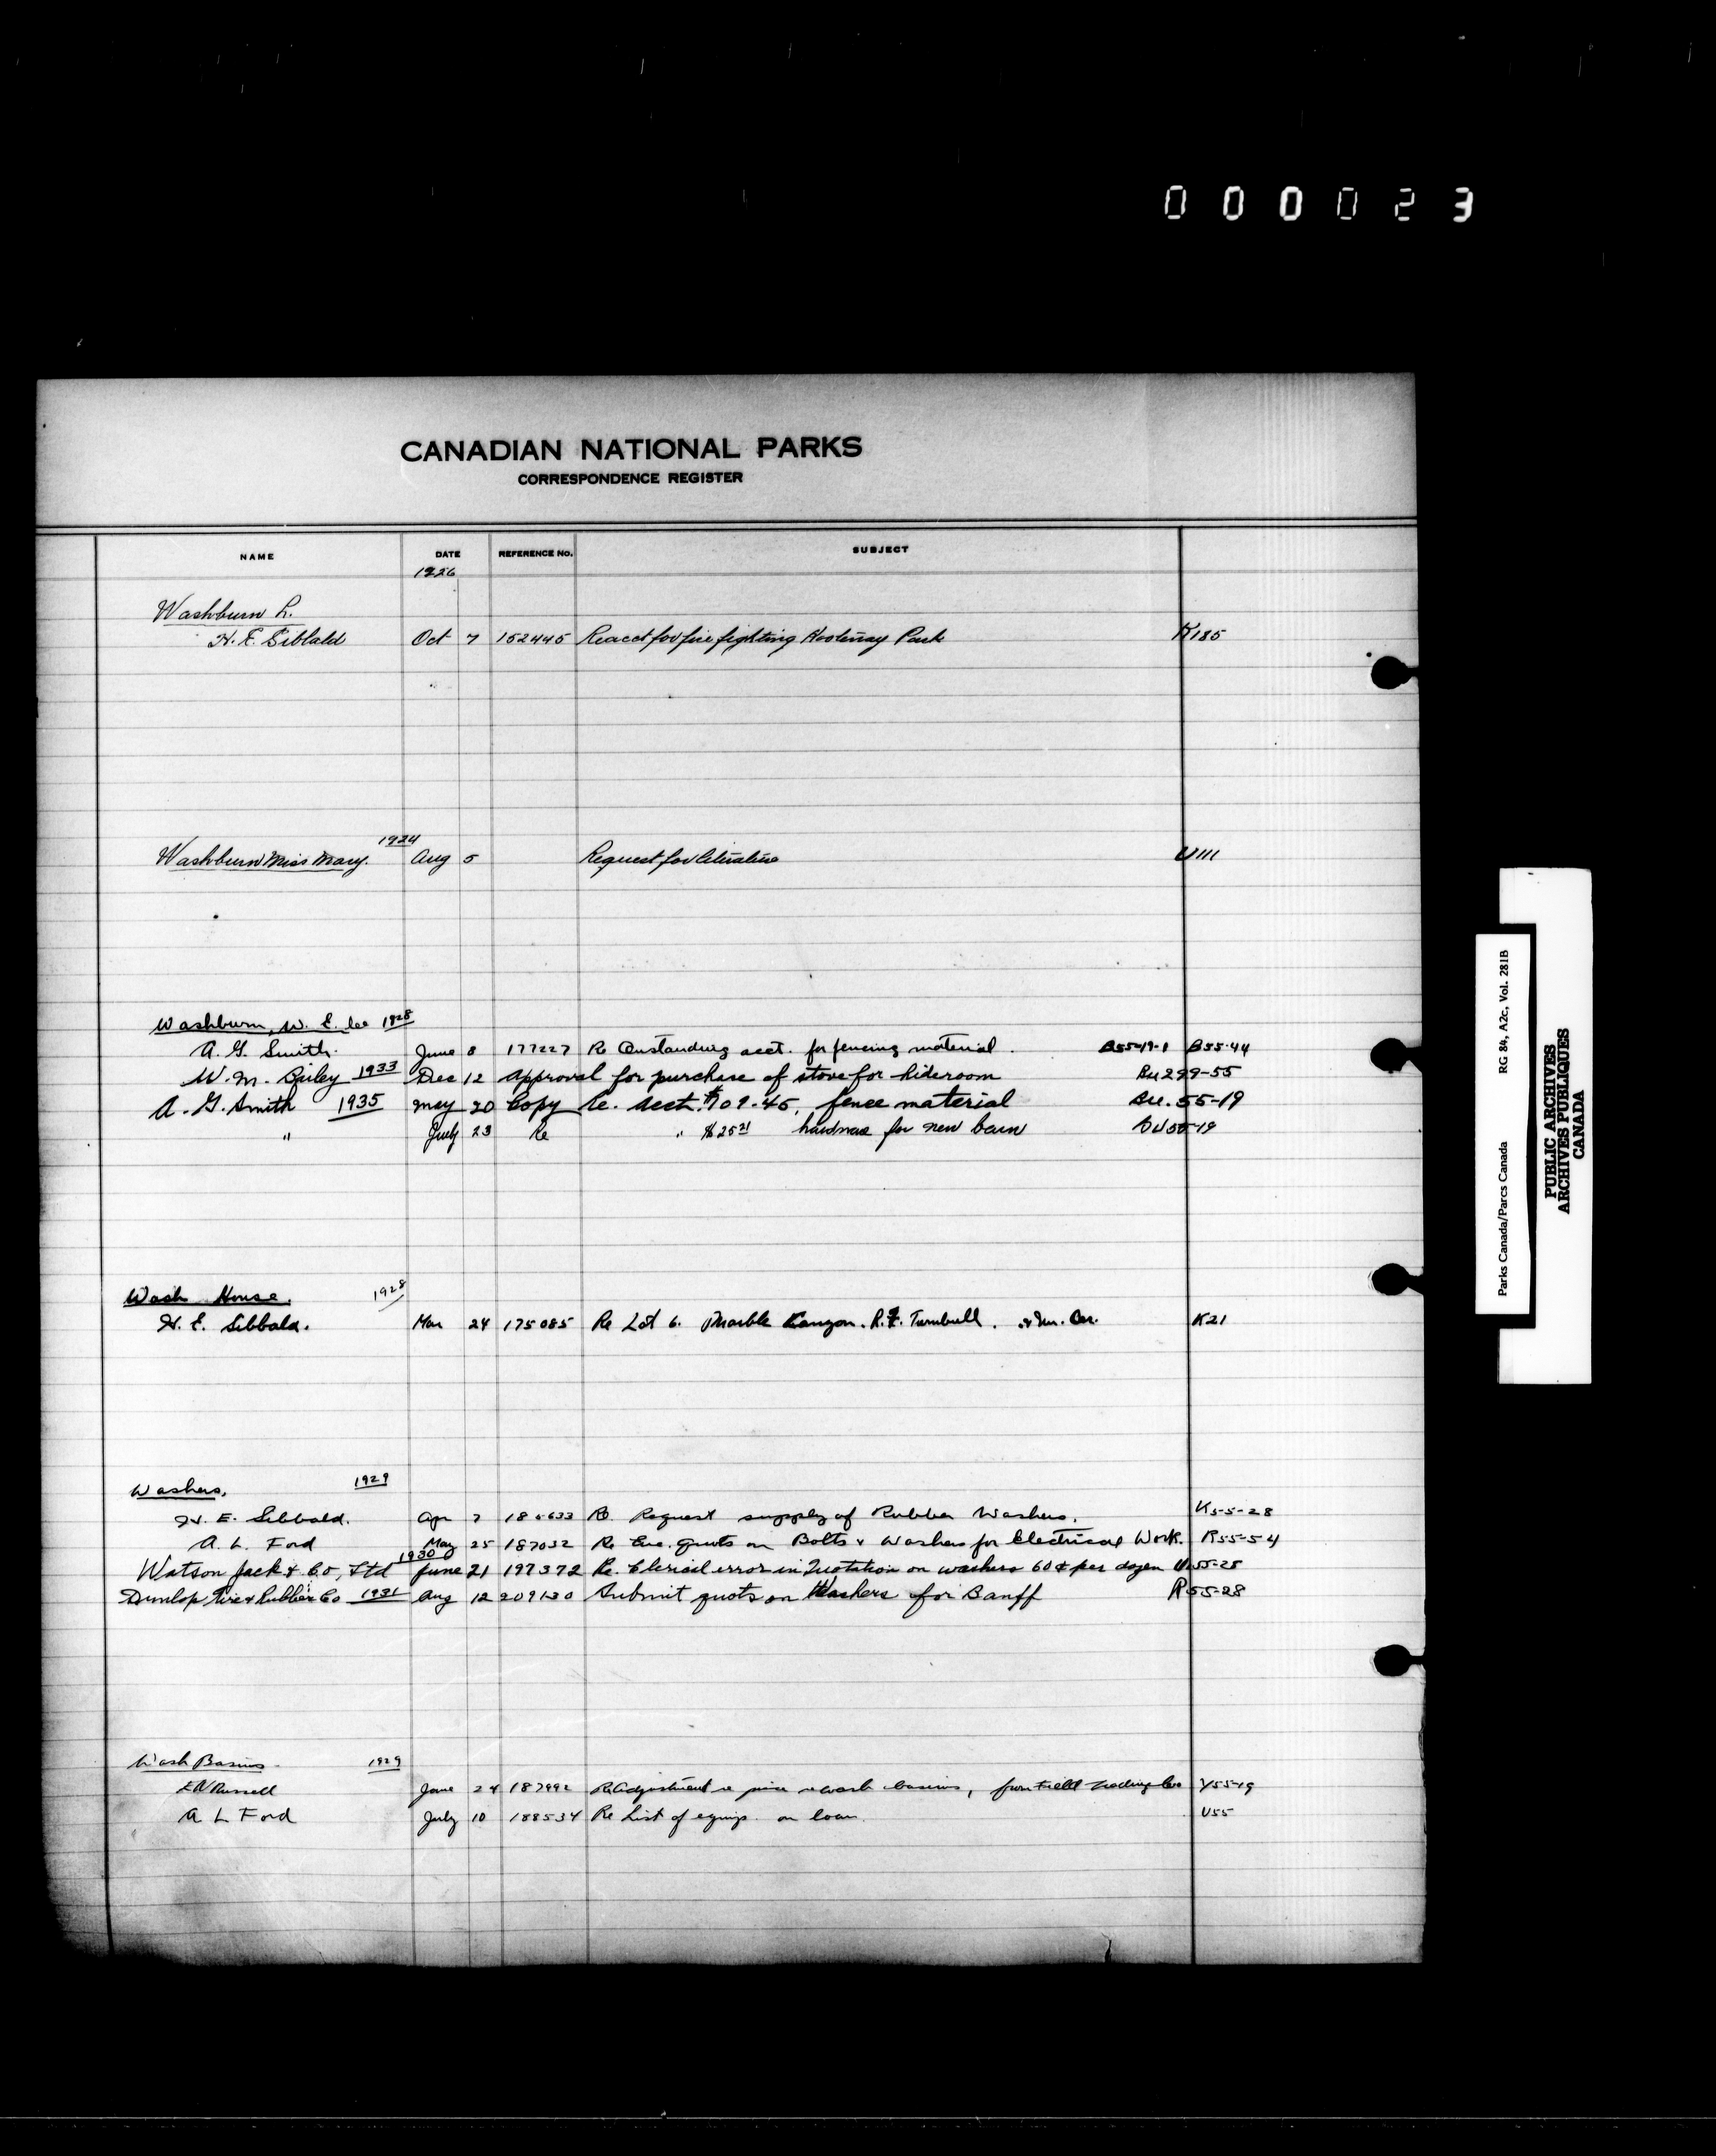 000023
CANADIAN NATIONAL PARKS
CORRESPONDENCE REGISTER
NAME DATE REFERENCE No. SUBJECT
1926
Washburn L.
H. E. Sibbald Oct 7 152445 Re acct for fire fighting Kootenay Park K185
1924
Washburn Miss Mary. Aug 5 Request for literature U111
Washburn, W. E. 1928
A. G. Smith. June 8 177227 Re Outstanding acct. for fencing material. B55-19-1 B55-44
W. M. 1933 Dec 12 Approval for purchase of stove for hideroom Bu 299-55
A. G. Smith 1935 May 20 Copy Re. Acct. $709.45, fence material Bu. 55-19
" July 23 Re " $25 hardware for new barn BU 55-19
Wash House. 1928
H. E. Sibbald. Mar 24 175085 Re Lot 6. Marble Canyon. R. F. Turnbull. K21
Washers. 1929
H. E. Sibbald. Apr 7 Re Request supply of Rubber Washers. K5-5-28
A. L. Ford May 25 187032 Re quots on Bolts & Washers for Electrical Work. R55-54
1930
Watson Jack & Co, Ltd June 21 197372 Re. Clerical error in Quotation on washers 60¢ per dozen U55-28
Dunlop Tire & Rubber Co 1931 Aug 12 209130 Submit quots on Washers for Banff R55-28
Wash Basins 1929
Russell June 24 187992 Re Adjustment re price wash basins, from Field Trading Co Y55-19
A L Ford July 10 188534 Re List of equip. on loan. U55
Parks Canada/Parcs Canada RG 84, A2c, Vol. 281B
PUBLIC ARCHIVES
ARCHIVES PUBLIQUES
CANADA